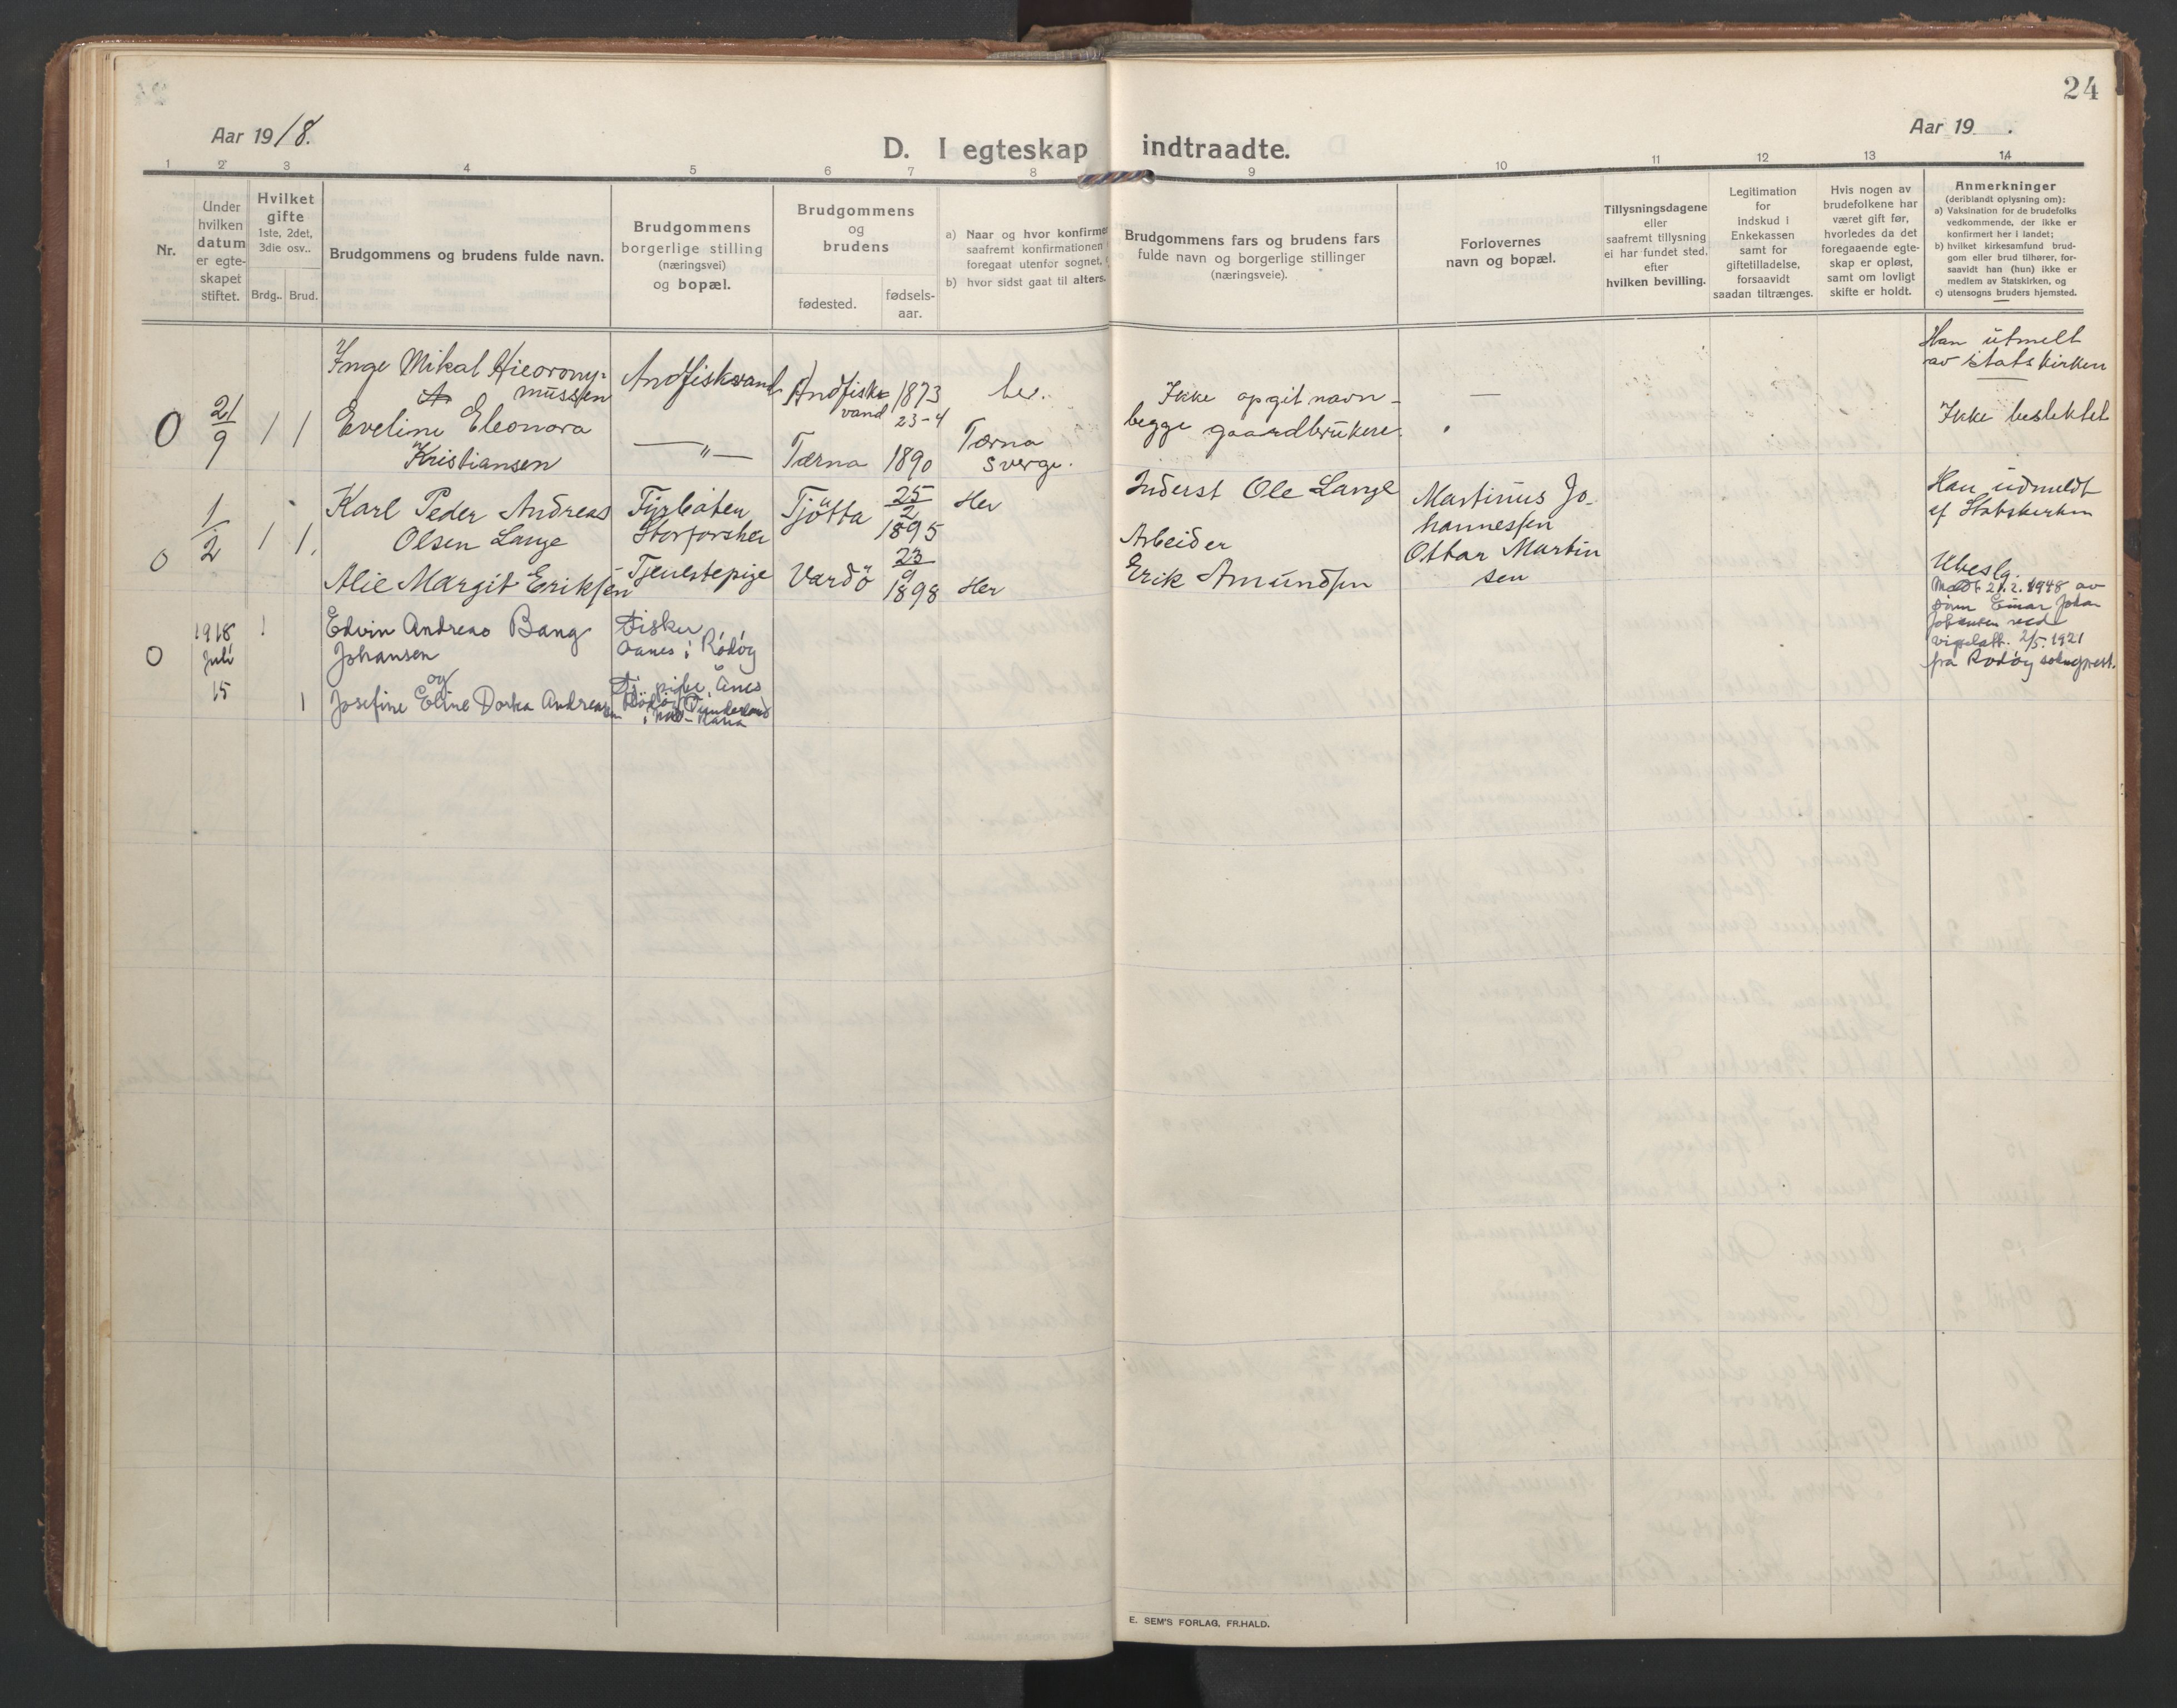 24
Aar 1918.
Aar 19 .
D. I egteskap indtraadte.
1 2 3 4 5 6 7 8 9 10 11 12 13 14
Nr.
Under
hvilken
datum
er egte-
skapet
stiftet.
Hvilket
gifte
1ste, 2det,
3die osv..
Brdg.. Brud.
Brudgommens og brudens fulde navn.
Brudgommens
borgerlige stilling
(næringsvei)
og bopæl.
Brudgommens
og
brudens
fødested.
fødsels-
aar.
a) Naar og hvor konfirmer
saafremt konfirmationen
foregaat utenfor sognet,
b) hvor sidst gaat til alters.
Brudgommens fars og brudens fars
fulde navn og borgerlige stillinger
(næringsveie).
Forlovernes
navn og bopæl.
Tillysningsdagene
eller
saafremt tillysning
ei har fundet sted,
efter
hvilken bevilling.
Legitimation
for
indskud i
Enkekassen
samt for
giftetilladelse,
forsaavidt
saadan tiltrænges.
Hvis nogen av
brudefolkene har
været gift før,
hvorledes da det
foregaaende egte-
skap er opløst,
samt om lovligt
skifte er holdt.
Anmerkninger
(deriblandt oplysning om):
a) Vaksination for de brudefolks
vedkommende, der ikke er
konfirmert her i landet;
b) hvilket kirkesamfund brud-
gom eller brud tilhører, for-
saavidt han (hun) ikke er
medlem av Statskirken, og
c) utensogns bruders hjemsted.
O
21/9
1 1
Inge Mikal Hieorony-
mussen
Eveline Eleonora
Kristiansen
Andfiskvand
— " —
Andfisk-
vand
1873
23-4
Tærna 1890
her.
Tærna
Sverge.
Ikke opgit navn -
begge gaardbrukere.
—
Han utmelt
av statskirken
Ikke beslektet
O
1/2
1 1.
Karl Peder Andreas
Olsen Lange
Alie Margit Eriksen
Fyrbøter
Storforshei
Tjenestepige
Tjøtta
25/2
1895
Vardø
23/9
1898
Her
Her
Inderst Ole Lange
Arbeider
Erik Amundsen
Martinus Jo-
hannessen
Ottar Martin
sen
Han udmeldt
af Statskirken
Ubeslg.
O
1918
Juli
15
1
1
Edvin Andreas Bang
Johansen
og
Josefine Eline Dorka Andreassen
Fisker
Aanes i Rødøy
Tj. pige, Ånes
Rødøy, Dunderland
i Nord-Rana
Medt 21.2.1948 av
Einar Johan
Johansen med
vigselatt. 2/5.1921
fra Rødøy sokneprest.
E. SEM'S FORLAG, FR.HALD.